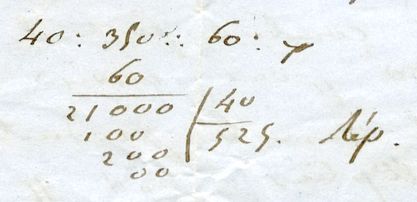 40: 350:: 60: x
60
21000 40
100 525. Rép.
200
00